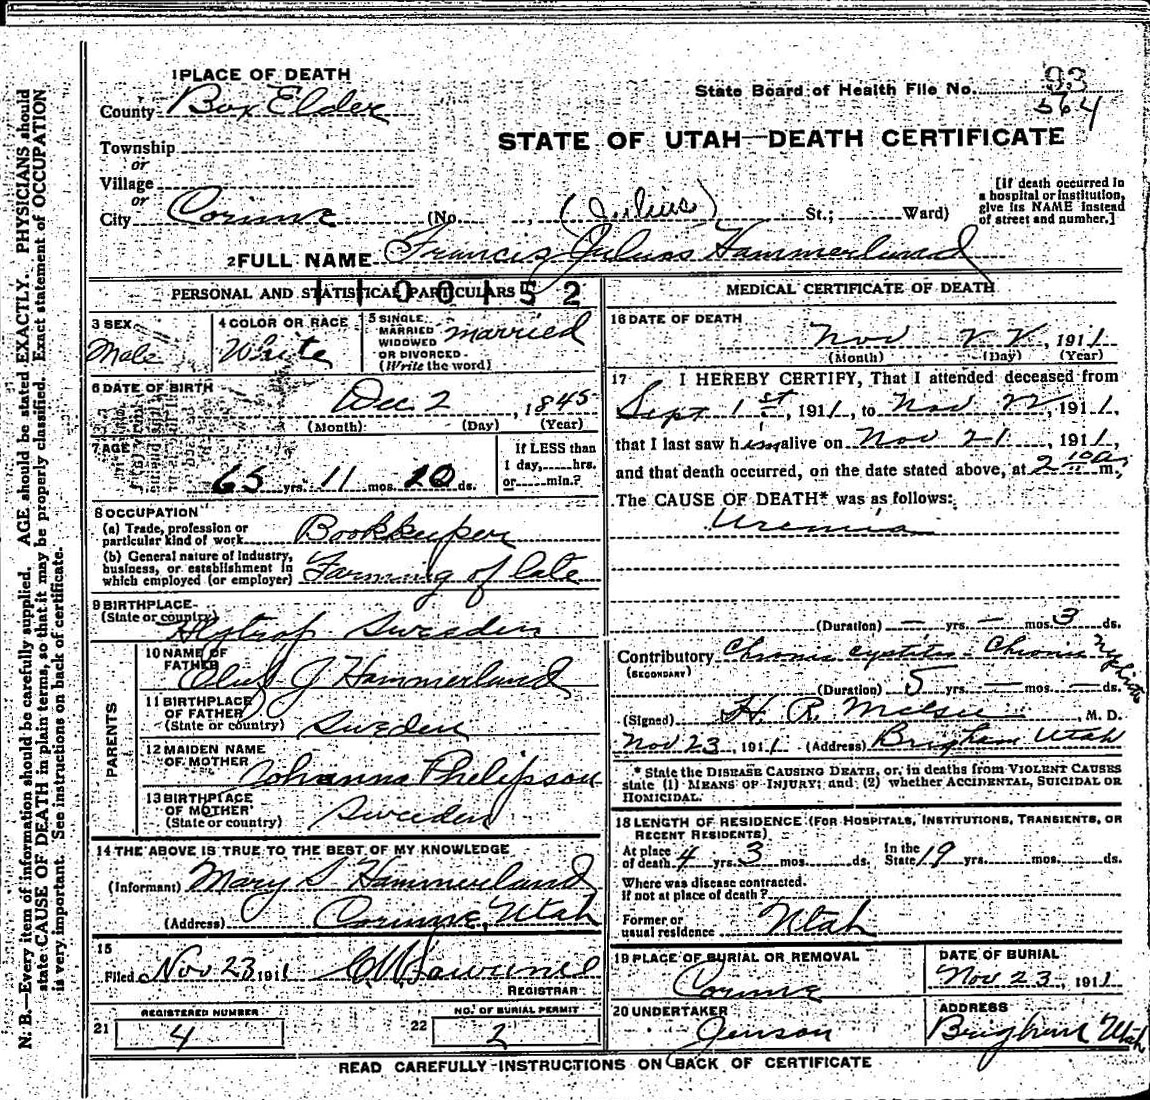 1 PLACE OF DEATH
County Box Elder
Township
or
Village
or
City Corinne (No. , (Julius) St.; Ward)
State Board of Health File No. 93
564
STATE OF UTAH—DEATH CERTIFICATE
[If death occurred in
a hospital or institution,
give its NAME instead
of street and number.]
2 FULL NAME Francis Julius Hammerlund
PERSONAL AND STATISTICAL PARTICULARS
1100152
3 SEX
Male
4 COLOR OR RACE
White
5 SINGLE,
MARRIED
WIDOWED
OR DIVORCED
(Write the word)
married
6 DATE OF BIRTH
Dec 2, 1845
(Month) (Day) (Year)
7 AGE
65 yrs. 11 mos. 20 ds.
If LESS than
1 day, hrs.
or min.?
8 OCCUPATION
(a) Trade, profession or
particular kind of work Bookkeeper
(b) General nature of industry,
business, or establishment in
which employed (or employer) Farming of late
9 BIRTHPLACE
(State or country)
Sweden
PARENTS
10 NAME OF
FATHER
Oluf J Hammerlund
11 BIRTHPLACE
OF FATHER
(State or country) Sweden
12 MAIDEN NAME
OF MOTHER Johanna Phelipson
13 BIRTHPLACE
OF MOTHER
(State or country) Sweden
14 THE ABOVE IS TRUE TO THE BEST OF MY KNOWLEDGE
(Informant) Mary S Hammerlund
(Address) Corinne, Utah
15
Filed Nov 23 1911
REGISTRAR
21 REGISTERED NUMBER
4
22 NO. OF BURIAL PERMIT
2
MEDICAL CERTIFICATE OF DEATH
16 DATE OF DEATH
Nov 22, 1911
(Month) (Day) (Year)
17 I HEREBY CERTIFY, That I attended deceased from
Sept 1st, 1911, to Nov 22, 1911,
that I last saw him alive on Nov 21, 1911,
and that death occurred, on the date stated above, at 2 10 a m.
The CAUSE OF DEATH* was as follows:
Uremia
(Duration) — yrs. — mos. 3 ds.
Contributory Chronic cystitis - Chronic Nephritis
(SECONDARY)
(Duration) 5 yrs. — mos. — ds.
(Signed) H. R. M. D.
Nov 23, 1911 (Address) Brigham Utah
* State the DISEASE CAUSING DEATH, or, in deaths from VIOLENT CAUSES
state (1) MEANS OF INJURY; and (2) whether ACCIDENTAL, SUICIDAL OR
HOMICIDAL.
18 LENGTH OF RESIDENCE (FOR HOSPITALS, INSTITUTIONS, TRANSIENTS, OR
RECENT RESIDENTS)
At place
of death 4 yrs. 3 mos. ds. In the
State 19 yrs. mos. ds.
Where was disease contracted.
if not at place of death?
Former or
usual residence Utah
19 PLACE OF BURIAL OR REMOVAL
Corinne
DATE OF BURIAL
Nov 23, 1911
20 UNDERTAKER
Jenson
ADDRESS
Brigham Utah
READ CAREFULLY INSTRUCTIONS ON BACK OF CERTIFICATE
N. B.—Every item of information should be carefully supplied. AGE should be stated EXACTLY. PHYSICIANS should
state CAUSE OF DEATH in plain terms, so that it may be properly classified. Exact statement of OCCUPATION
is very important. See instructions on back of certificate.